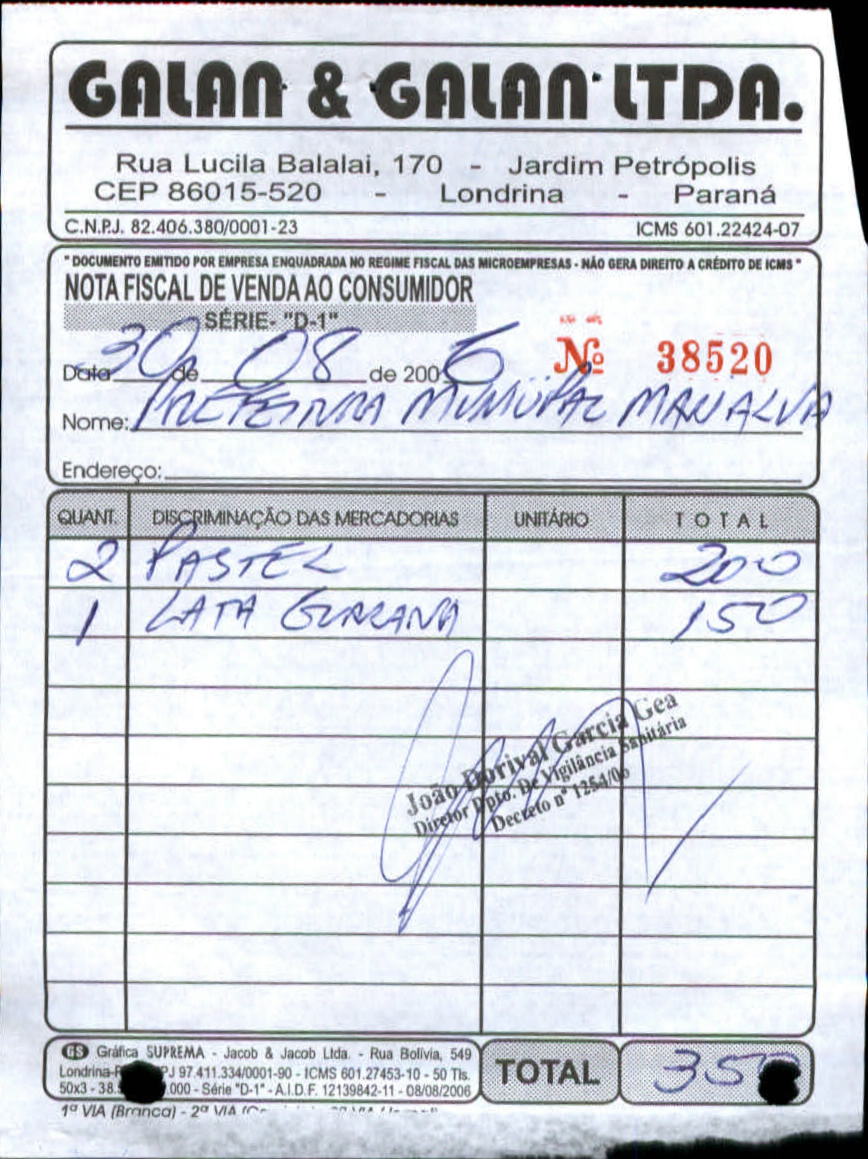 GALAN & GALAN LTDA.
Rua Lucila Balalai, 170 - Jardim Petrópolis
CEP 86015-520 - Londrina - Paraná
C.N.P.J. 82.406.380/0001-23 ICMS 601.22424-07
" DOCUMENTO EMITIDO POR EMPRESA ENQUADRADA NO REGIME FISCAL DAS MICROEMPRESAS - NÃO GERA DIREITO A CRÉDITO DE ICMS "
NOTA FISCAL DE VENDA AO CONSUMIDOR
SÉRIE- "D-1"
Data 30 de 08 de 2006 Nº 38520
Nome: PREFEITURA MUNICIPAL MARIALVA
Endereço:
QUANT. DISCRIMINAÇÃO DAS MERCADORIAS UNITÁRIO TOTAL
2 PASTEL 200
1 LATA GUARANA 150
João Dorival Garcia Gea
Diretor Dpto. De Vigilância Sanitária
Decreto nº 1254/06
GS Gráfica SUPREMA - Jacob & Jacob Ltda. - Rua Bolívia, 549
Londrina-P PJ 97.411.334/0001-90 - ICMS 601.27453-10 - 50 Tls.
50x3 - 38. .000 - Série "D-1" - A.I.D.F. 12139842-11 - 08/08/2006
TOTAL 350
1ª VIA (Branca) - 2ª VIA